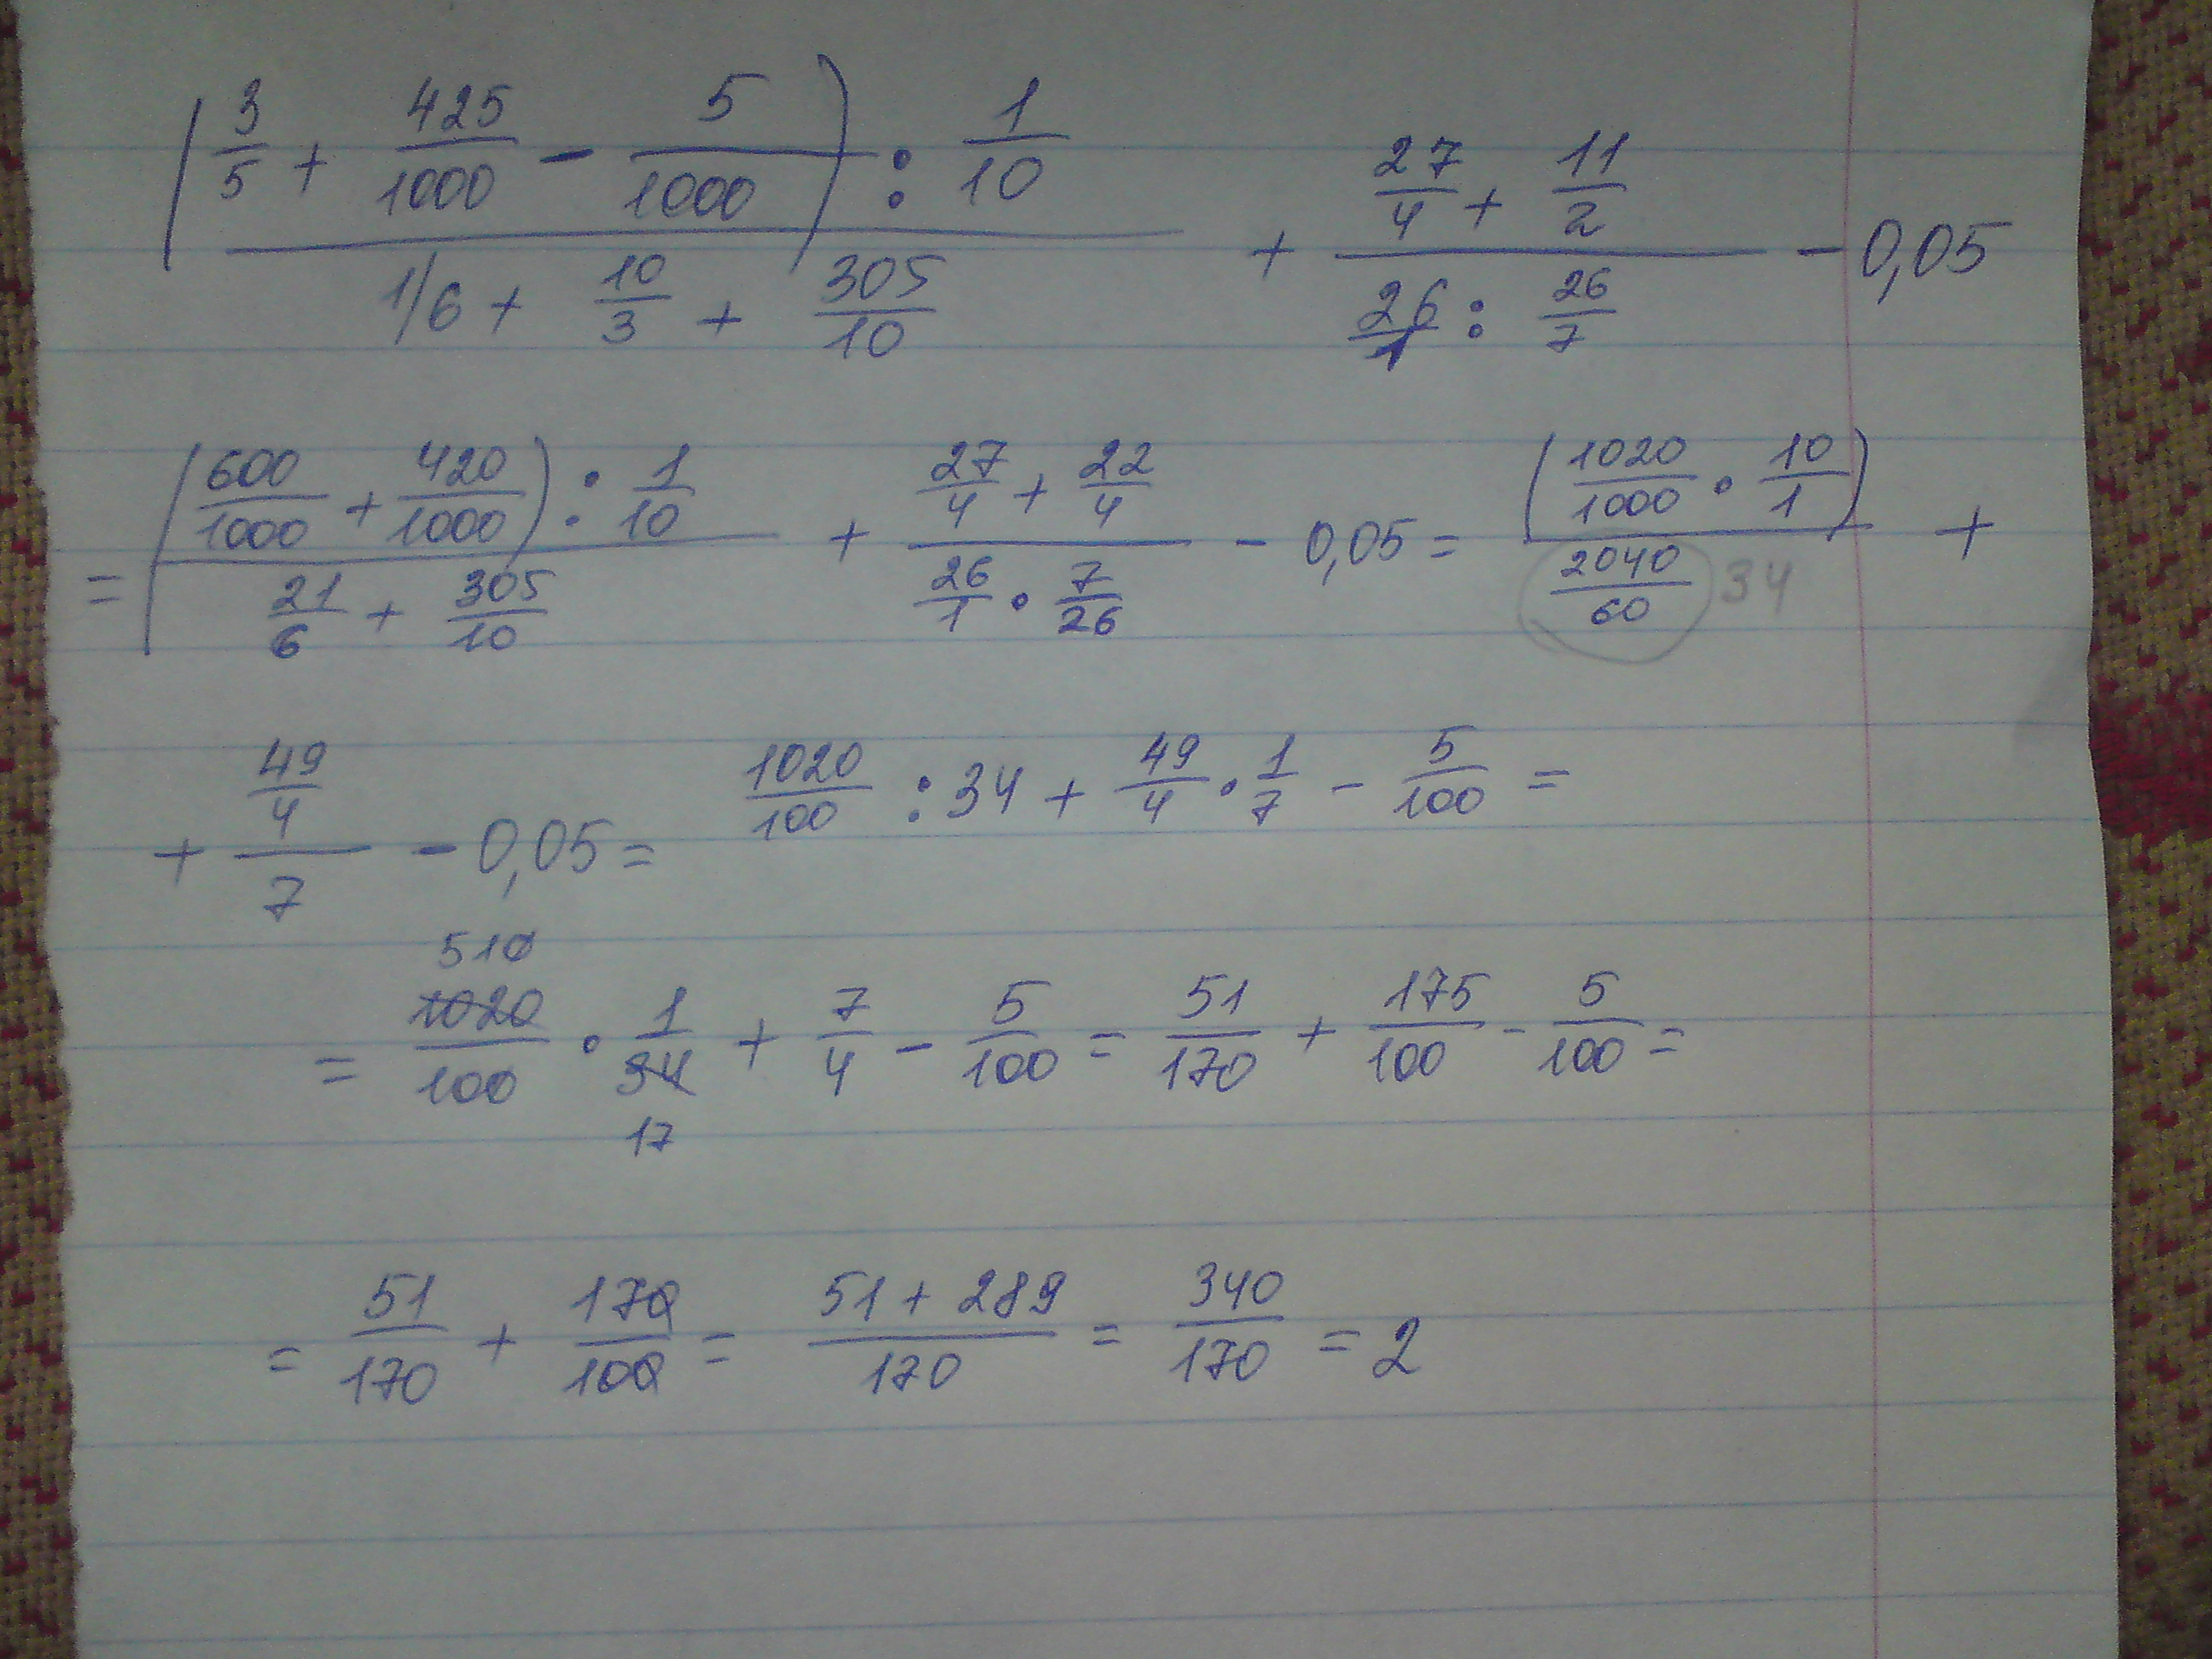 (3/5 + 425/1000 - 5/1000) : 1/10 / 1/6 + 10/3 + 305/10 + 27/4 + 11/2 / 26/1 : 26/7 - 0,05
= (600/1000 + 420/1000) : 1/10 / 21/6 + 305/10 + 27/4 + 22/4 / 26/1 · 7/26 - 0,05 = (1020/1000 · 10/1) / 2040/60 34 +
+ 49/4 / 7 - 0,05 = 1020/100 : 34 + 49/4 · 1/7 - 5/100 =
510
= 1020/100 · 1/34 + 7/4 - 5/100 = 51/170 + 175/100 - 5/100 =
17
= 51/170 + 170/100 = 51 + 289/170 = 340/170 = 2